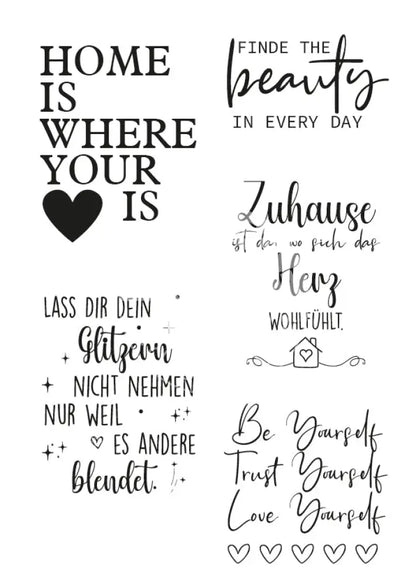 HOME
IS
WHERE
YOUR
IS
FINDE THE
beauty
IN EVERY DAY
Zuhause
ist da, wo sich das
Herz
WOHLFÜHLT.
LASS DIR DEIN
Glitzern
NICHT NEHMEN
NUR WEIL
ES ANDERE
blendet.
Be Yourself
Trust Yourself
Love Yourself